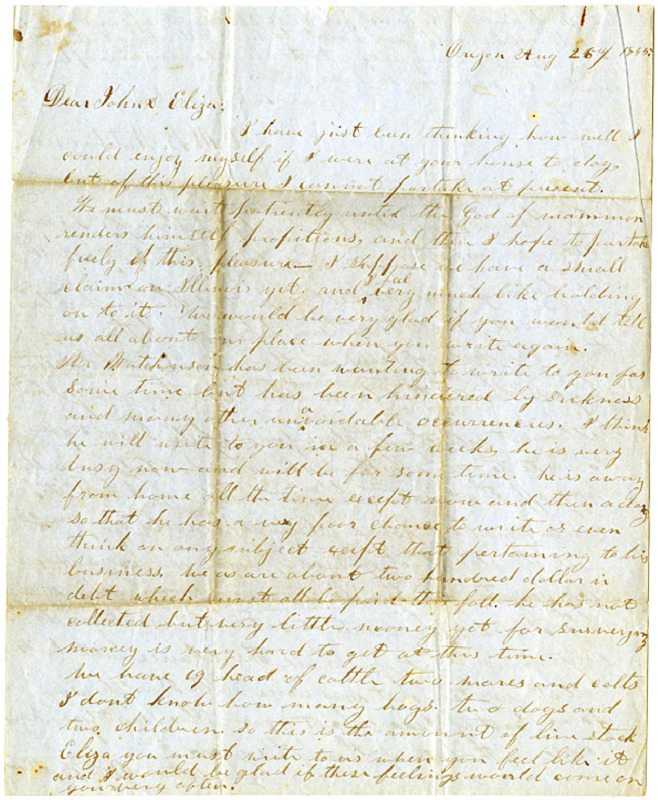 Oregon Aug 26th 1855.
Dear John & Eliza;
I have just been thinking how well I
could enjoy myself if I were at your house to day
but of this pleasure I cannot partake at present.
We must wait patiently until the God of mammon
renders himself propitious, and then I hope to partake
fuely of this pleasure— I suppose we have a small
claim on Illinois yet. and I feel very much like holding
on to it. We would be very glad if you would tell
us all about our place when you write again.
Mr Hutchinson has been wanting to write to you for
some time but has been hindered by sickness
and many other unavoidable occurrences. I think
he will write to you in a few weeks, he is very
busy now and will be for some time. he is away
from home all the time except now and then a day
so that he has a very poor chance to write or even
think on any subject except that pertaining to his
business. We are about two hundred dollar in
debt which must all be paid this fall. he has not
collected but very little money yet for surveying
money is very hard to get at this time.
We have 19 head of cattle two mares and colts
I dont know how many hogs. two dogs and
two children so this is the amount of live stock
Eliza you must write to us when you feel like it
and I would be glad if these feelings would come on
you very often.